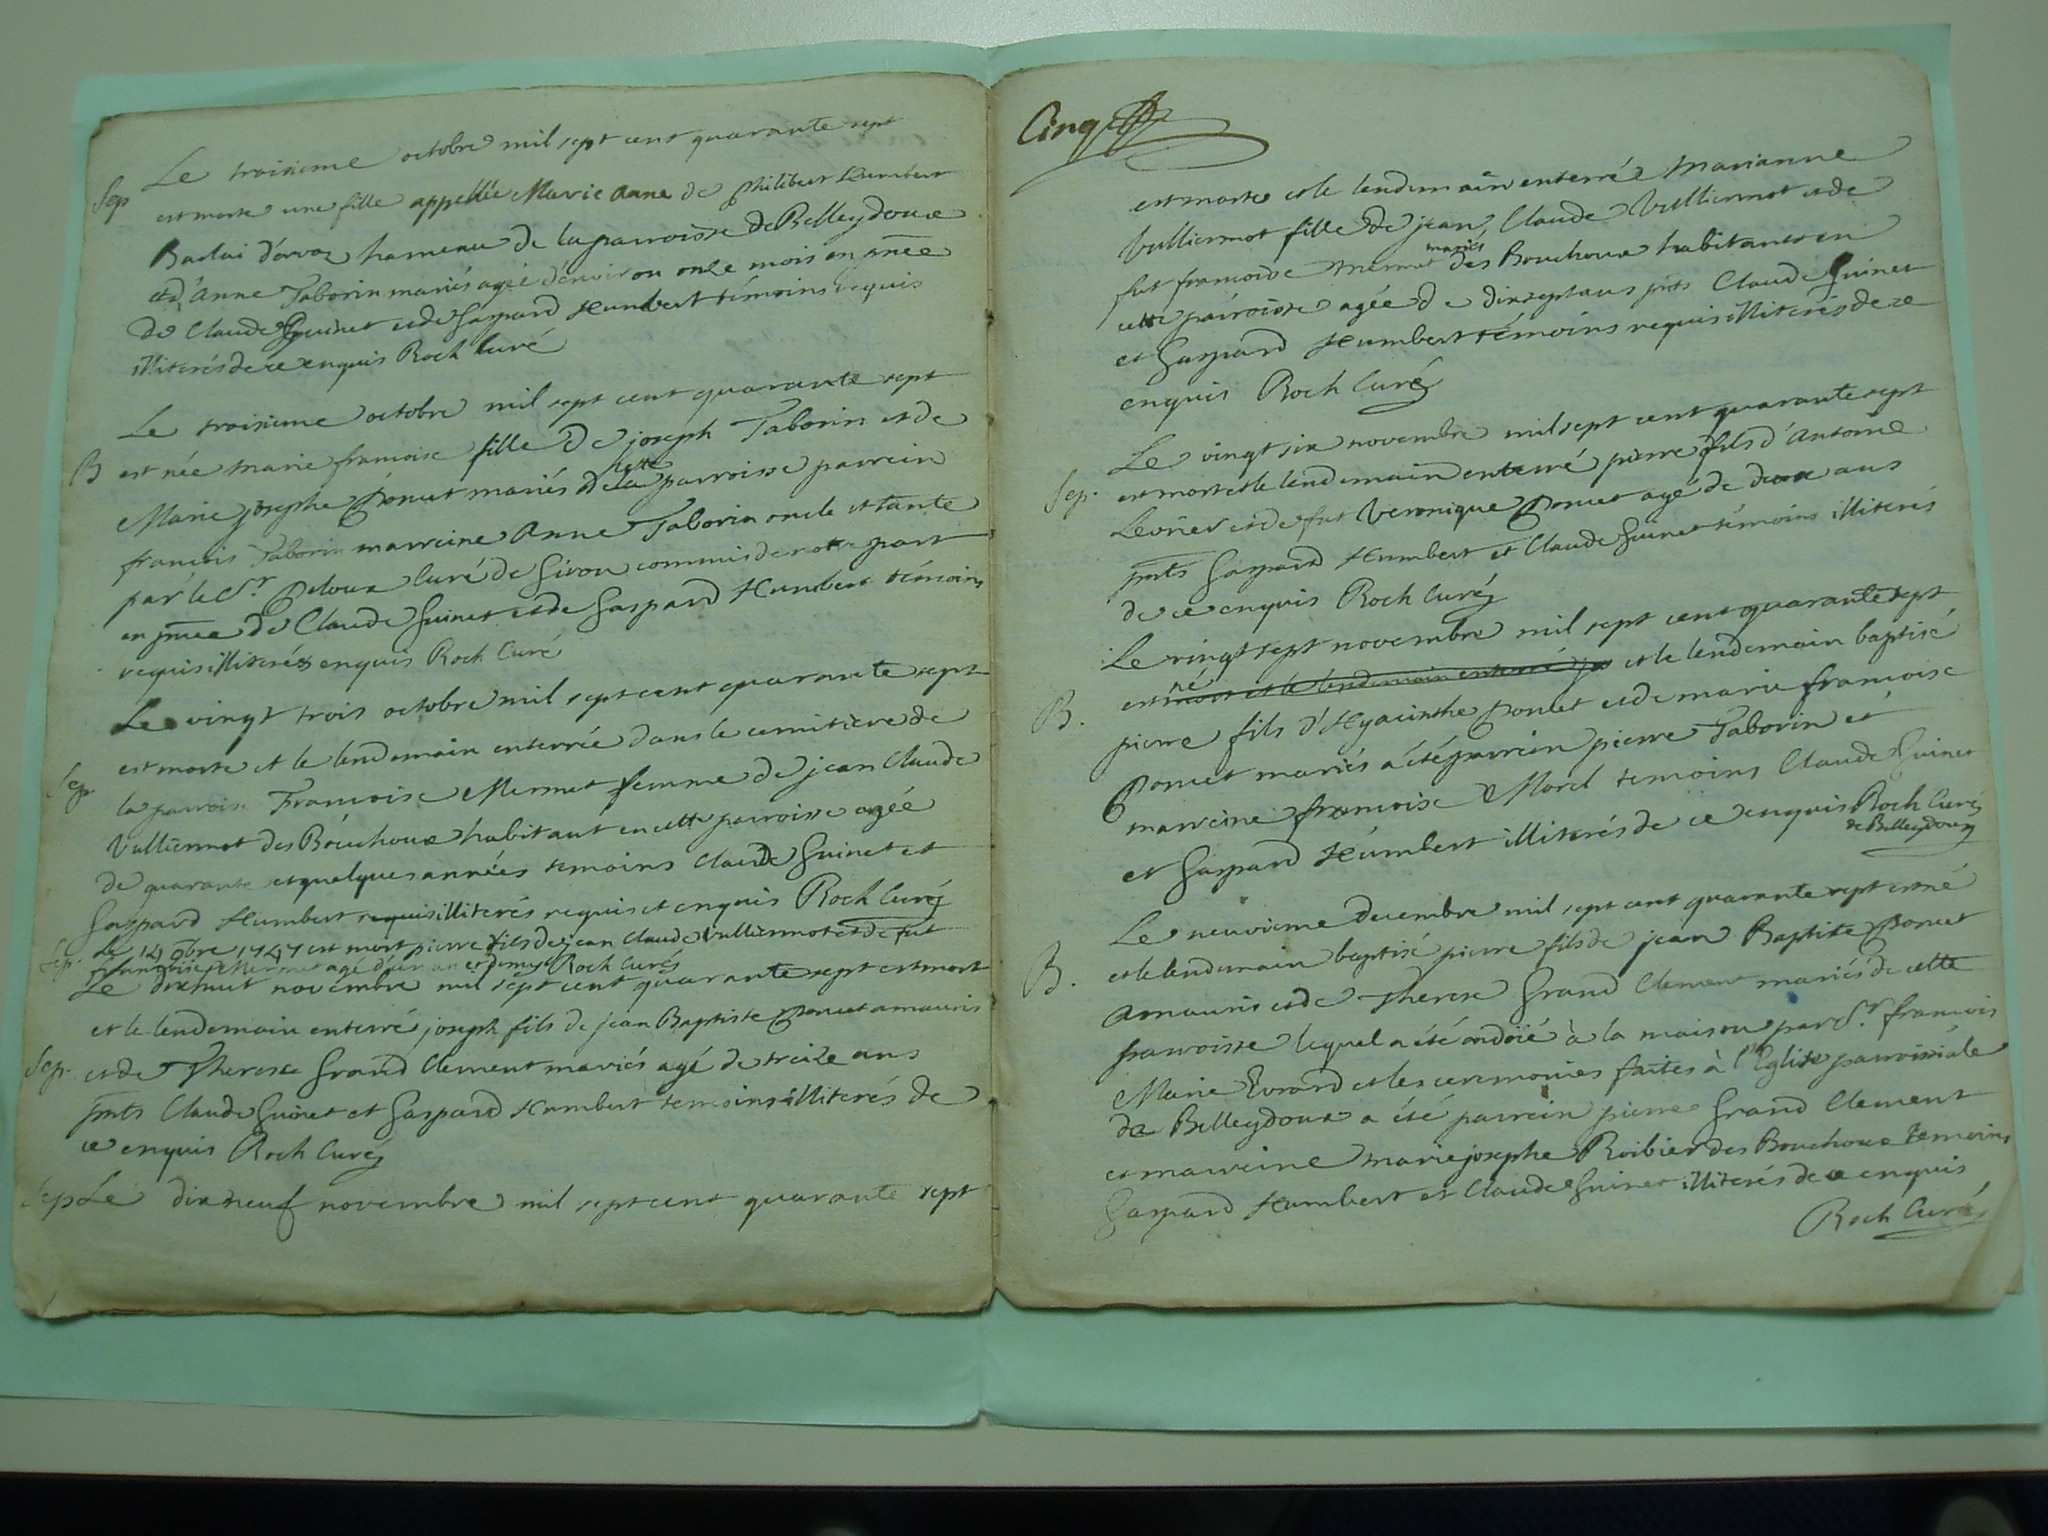 Le troisieme octobre mil sept cent quarante sept
Sep est morte une fille appellée Marie Anne de philibert humbert
Badai d'orvaz hameau de la parroisse de Belleydoux
et d'Anne Taborin mariés agée d'environ onze mois en pñce
de Claude Guinet et de Gaspard humbert témoins requis
illiterés de ce enquis Roch Curé
Le troisieme octobre mil sept cent quarante sept
B est née marie francoise fille de joseph Taborin et de
Marie josephe Poncet mariés de cette parroisse parrein
francois Taborin marreine Anne Taborin oncle et tante
par le Sr. Deloux Curé de Giron commis de notre part
en pñce de Claude Guinet et de Gaspard humbert témoins
requis illiterés enquis Roch Curé
Le vingt trois octobre mil sept cent quarante sept
est morte et le lendemain enterrée dans le cemitiere de
Sep. la parrois Francoise Mermet femme de jean Claude
Vulliermot des Bouchoux habitant en cette parroisse agée
de quarante et quelques années temoins Claude Guinet et
Gaspard humbert requis illiterés requis et enquis Roch Curé
Sep. Le 14 9bre 1747 est mort pierre fils de jean Claude Vulliermot et de fut
francoise Mermet agé d'un an et demy Roch Curé
Le dixhuit novembre mil sept cent quarante sept est mort
et le lendemain enterré joseph fils de jean Baptiste Poncet amauris
Sep. et de Therese Grand Clement mariés agé de treize ans
pñts Claude Guinet et Gaspard humbert temoins illiterés de
ce enquis Roch Curé
Sep Le dixneuf novembre mil sept cent quarante sept
Cinq
est morte et le lendemain enterré Marianne
Vulliermot fille de jean Claude Vulliermot et de
fut francoise Mermet mariés des Bouchoux habitants en
cette parroisse agée de dixsept ans pñts Claude Guinet
et Gaspard humbert témoins requis illiterés de ce
enquis Roch Curé
Le vingt six novembre mil sept cent quarante sept
Sep. est mort et le lendemain enterré pierre fils d'Antoine
Levrier et de fut Veronique Poncet agé de deux ans
pñts Gaspard humbert et Claude Guinet témoins illiterés
de ce enquis Roch Curé
Le vingt sept novembre mil sept cent quarante sept
B. est né mort et le lendemain enterré et le lendemain baptisé
pierre fils d'hyacinthe Poncet et de marie francoise
Poncet mariés a été parrein pierre Taborin et
marreine francoise Morel temoins Claude Guinet
et Gaspard humbert illiterés de ce enquis Roch Curé
de Belleydoux
Le neuvieme decembre mil sept cent quarante sept est né
B. et le lendemain baptisé pierre fils de jean Baptiste Poncet
Amauris et de Therese Grand Clement mariés de cette
parroisse lequel a été ondoié à la maison par Sr. francois
Marie Evrard et les ceremonies faites à l'Eglise parroissiale
de Belleydoux a été parrein pierre Grand Clement
et marreine marie josephe Roibier des Bouchoux temoins
Gaspard humbert et Claude Guinet illiterés de ce enquis
Roch Curé